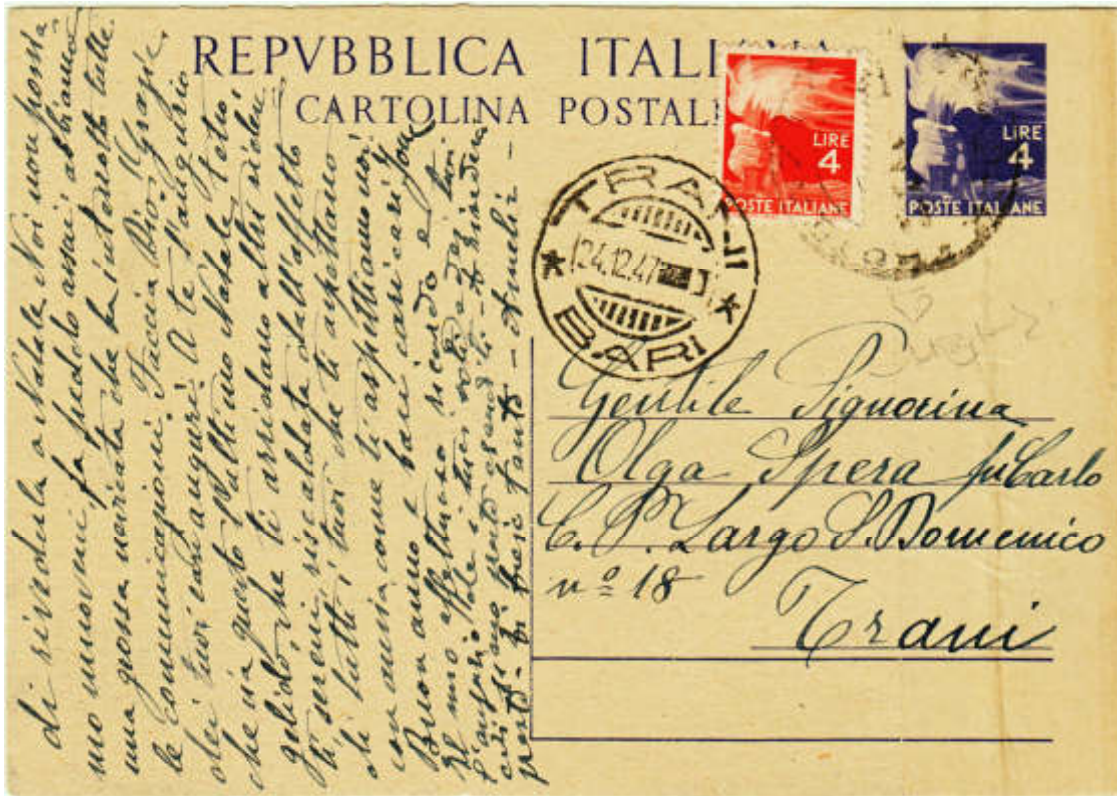 REPVBBLICA ITALI
CARTOLINA POSTAL
LIRE
4
POSTE ITALIANE
LIRE
4
POSTE ITALIANE
TRANI
24.12.47
BARI
Gentile Signorina
Olga Spera fu Carlo
C. P. Largo S. Domenico
nº 18
Trani
di rivederla a Natale Noi non possia
mo muoverci fa freddo assai abbiamo
una grossa nevicata che ha interrotto tutte
le comunicazioni. Faccia Dio! Grazie
dei tuoi cari auguri. A te l'augurio
che sia questo l'ultimo Natale
gelido, che ti arridano altri
sereni, riscaldati dall'affetto
di tutti i tuoi che ti aspettano
con ansia come ti aspettiamo noi
Buon anno e baci carissimi
Il mio affettuoso ricordo e
l'augurio
presto - Ti bacio tanto - Amelia -